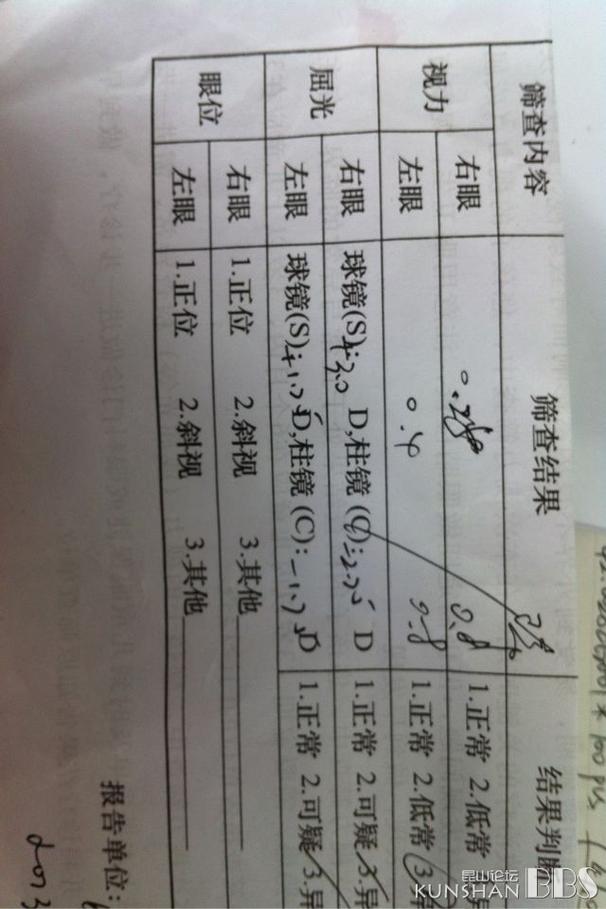 筛查内容 筛查结果 结果判断
视力 右眼 0.8 1.正常 2.低常
左眼 0.4 0.8 1.正常 2.低常 3.异
屈光 右眼 球镜(S): D,柱镜(C): D 1.正常 2.可疑 3.异
左眼 球镜(S): D,柱镜(C): D 1.正常 2.可疑 3.异
眼位 右眼 1.正位 2.斜视 3.其他
左眼 1.正位 2.斜视 3.其他
报告单位:
昆山论坛
KUNSHAN BBS